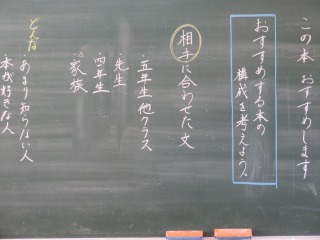 この本 おすすめします
おすすめする本の
構成を考えよう。
相手に合わせた文
五年生他クラス
先生
四年生
家族
どんな
あまり知らない人
本が好きな人